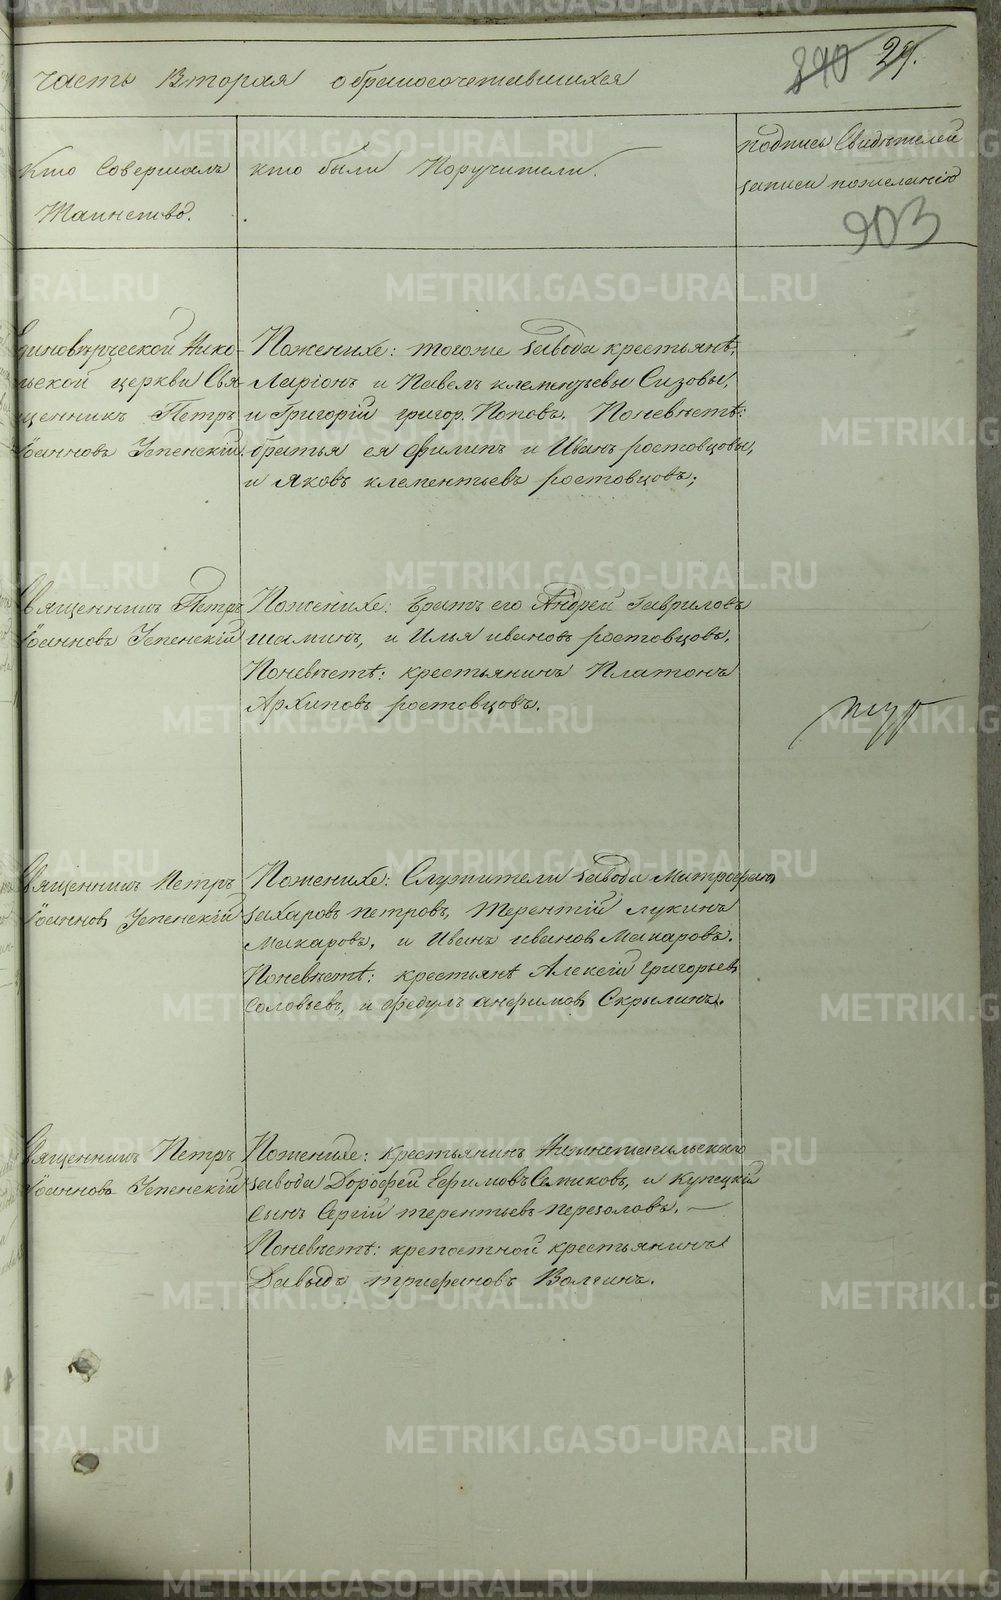 890 29.
Часть Вторая обракосочетавшихся
Кто Совершалъ
Таинство.
кто были Поручители.
подпись Свидѣтелей
записи пожеланію
903
Единовѣрческой Нико-
льской церкви Свя-
щенникъ Петръ
Іоанновъ Успенскій
Поженихѣ: тогоже завода крестьянѣ,
Ларіонъ и Павелъ клементьевы Сизовы,
и Григорій григор. Поповъ. Поневѣстѣ:
братья ея филипъ и Иванъ ростовцовы,
и яковъ клементьевъ ростовцовъ;
Священникъ Петръ
Іоанновъ Успенскій
Поженихѣ: братъ его Андрей Гавриловъ
шаминъ, и Илья ивановъ ростовцовъ.
Поневѣстѣ: крестьянинъ Платонъ
Архиповъ ростовцовъ.
Священникъ Петръ
Іоанновъ Успенскій
Поженихѣ: Служители завода Митрофанъ
захаровъ петровъ, терентій лукинъ
Макаровъ, и Иванъ ивановъ Макаровъ.
Поневѣстѣ: крестьянѣ Алексій григорьевъ
соловьевъ, и федулъ анфимовъ Скрылинъ.
Священникъ Петръ
Іоанновъ Успенскій
Поженихѣ: крестьянинъ Нижнетагильскаго
завода Дорофей Ефимовъ Семиковъ, и Купецкій
сынъ Сергій терентьевъ перезоловъ. —
Поневѣстѣ: крепостной крестьянинъ
Давыдъ трифановъ Волгинъ.
METRIKI.GASO-URAL.RU